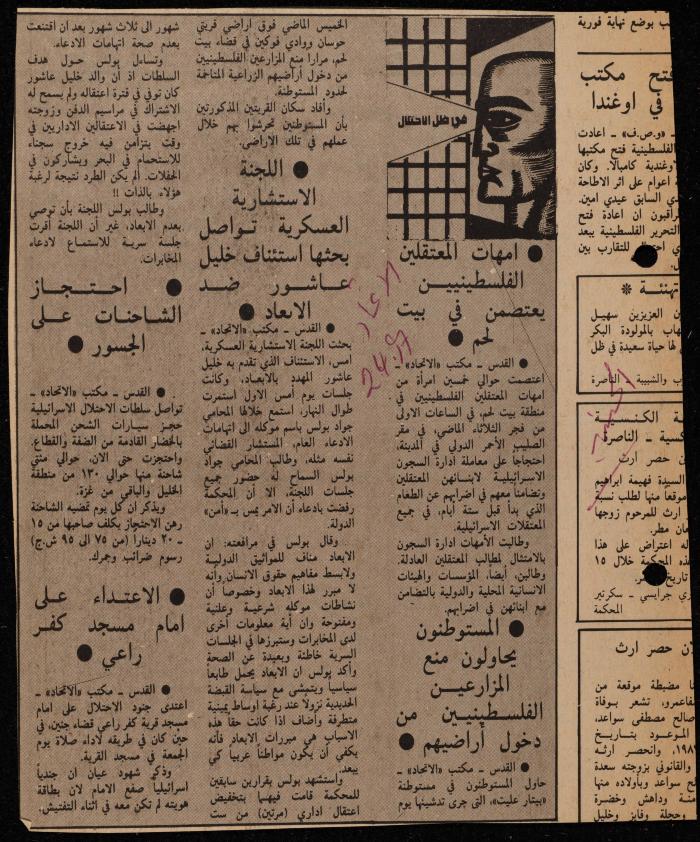 في ظل الاحتلال
● امهات المعتقلين
الفلسطينيين
يعتصمن في بيت
لحم ●
● القدس ـ مكتب «الاتحاد» ـ
اعتصمت حوالي خمسين امرأة من
امهات المعتقلين الفلسطينيين في
منطقة بيت لحم، في الساعات الاولى
من فجر الثلاثاء الماضي، في مقر
الصليب الأحمر الدولي في المدينة،
احتجاجاً على معاملة ادارة السجون
الاسرائيلية لابنائهن المعتقلين
وتضامنا معهم في اضرابهم عن الطعام
الذي بدأ قبل ستة أيام، في جميع
المعتقلات الاسرائيلية.
وطالبت الأمهات ادارة السجون
بالامتثال لمطالب المعتقلين العادلة.
وطالبن، أيضاً، المؤسسات والهيئات
الانسانية المحلية والدولية بالتضامن
مع ابنائهن في اضرابهم.
● المستوطنون
يحاولون منع
المزارعين
الفلسطينيين من
دخول أراضيهم ●
● القدس ـ مكتب «الاتحاد» ـ
حاول المستوطنون في مستوطنة
«بيتار عليت»، التى جرى تدشينها يوم
الخميس الماضي فوق اراضي قريتي
حوسان ووادي فوكين في قضاء بيت
لحم، مرارا منع المزارعين الفلسطينيين
من دخول أراضيهم الزراعية المتاخمة
لحدود المستوطنة.
وأفاد سكان القريتين المذكورتين
بأن المستوطنين تحرشوا بهم خلال
عملهم في تلك الاراضي.
● اللجنة
الاستشارية
العسكرية تواصل
بحثها استئناف خليل
عاشور ضد
الابعاد ●
● القدس ـ مكتب «الاتحاد» ـ
بحثت اللجنة الاستشارية العسكرية،
امس، الاستئناف الذي تقدم به خليل
عاشور المهدد بالابعاد، وكانت
جلسات يوم أمس الأول استمرت
طوال النهار، استمع خلالها المحامي
جواد بولس باسم موكله الى اتهامات
الادعاء العام، المستشار القضائي
نفسه مثله، وطالب المحامي جواد
بولس السماح له حضور جميع
جلسات اللجنة، الا أن المحكمة
رفضت بادعاء أن الامر يمس بـ «أمن»
الدولة.
وقال بولس في مرافعته: ان
الابعاد مناف للمواثيق الدولية
ولابسط مفاهيم حقوق الانسان وأنه
لا مبرر لهذا الابعاد وخصوصا أن
نشاطات موكله شرعية وعلنية
ومفتوحة وان أية معلومات أخرى
لدى المخابرات وستبرزها في الجلسات
السرية خاطئة وبعيدة عن الصحة
وأكد بولس ان الابعاد يحمل طابعاً
سياسيا ويتمشى مع سياسة القبضة
الحديدية نزولا عند رغبة اوساط يمينية
متطرفة وأضاف اذا كانت حقا هذه
الاسباب هي مبررات الابعاد فأنه
يكفي أن يكون مواطناً عربيا كي
يبعد.
واستشهد بولس بقرارين سابقين
للمحكمة قامت فيهما بتخفيض
اعتقال اداري (مرتين) من ست
شهور الى ثلاث شهور بعد أن اقتنعت
بعدم صحة اتهامات الادعاء.
وتساءل بولس حول هدف
السلطات اذ أن والد خليل عاشور
كان توفي في فترة اعتقاله ولم يسمح له
الاشتراك في مراسيم الدفن وزوجته
اجهضت في الاعتقالين الاداريين في
وقت يتزامن فيه خروج سجناء
للاستحمام في البحر ويشاركون في
الحفلات. ألم يكن الطرد نتيجة لرغبة
هؤلاء بالذات !!
وطالب بولس اللجنة بأن توصي
بعدم الابعاد، غير أن اللجنة أقرت
جلسة سرية للاستماع لادعاء
المخابرات.
● احتجاز
الشاحنات على
الجسور ●
● القدس ـ مكتب «الاتحاد» ـ
تواصل سلطات الاحتلال الاسرائيلية
حجز سيارات الشحن المحملة
بالخضار القادمة من الضفة والقطاع.
واحتجزت حتى الان، حوالي مئتي
شاحنة منها حوالي ١٣٠ من منطقة
الخليل والباقي من غزة.
ويذكر أن كل يوم تقضيه الشاحنة
رهن الاحتجاز يكلف صاحبها من ١٥
ـ ٢٠ دينارا (من ٧٥ الى ٩٥ ش.ج)
رسوم ضرائب وجمرك.
● الاعتداء على
امام مسجد كفر
راعي ●
● القدس ـ مكتب «الاتحاد» ـ
اعتدى جنود الاحتلال على امام
مسجد قرية كفر راعي قضاء جنين، في
حين كان في طريقه لأداء صلاة يوم
الجمعة في مسجد القرية.
وذكر شهود عيان أن جندياً
اسرائيليا صفع الامام لان بطاقة
هويته لم تكن معه في اثناء التفتيش.
الاتحاد
ب بوضع نهاية فورية
فتح مكتب
في اوغندا
ـ «و.ص.ف» ـ اعادت
الفلسطينية فتح مكتبها
اوغندية كامبالا. وكان
اعوام على اثر الاطاحة
السابق عيدي امين.
راقبون ان اعادة فتح
التحرير الفلسطينية يبعد
للتقارب بين
تهنئة *
ن العزيزين سهيل
هاب بالمولودة البكر
لها حياة سعيدة في ظل
ب والشبيبة ـ الناصرة
ة الكنسية
كسية ـ الناصرة
ن حصر ارث
السيدة فهيمة ابراهيم
موقعا منها لطلب نسبة
ارث للمرحوم زوجها
مان مطر.
له اعتراض على هذا
المحكمة خلال ١٥
تاريخ
ري جرايسي ـ سكرتير
المحكمة
لان حصر ارث
ا مضبطة موقعة من
نفاعمرو، تشعر بوفاة
صالح مصطفى سواعد،
الموعود بتاريخ
١٩٨، وانحصر ارثه
والقانوني بزوجته سعدة
ح سواعد وبأولاده منها
منة وداهش وخضرة
وحجلة وفايز وخليل